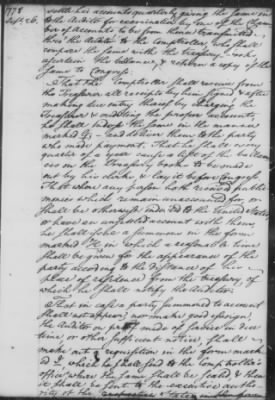 1778
Sept. 26.
settle his accounts quarterly giving the same in
to the Auditor for examination by one of the Cham-
ber of Accounts to be from thence transmitted
by the Auditor to the Comptroller who shall
compare the same with the Treasury books
ascertain the ballance, & return a copy of the
same to Congress.
That the Comptroller shall receive from
the Treasurer all receipts by him signed & after
making due entry thereof by charging the
Treasurer & crediting the proper accounts
he shall indorse the same in the manner
marked G; and deliver them to the party
who made payment. That he shall every
quarter of a year cause a list of the ballances
on the Treasury books to be made
out by his clerks, & lay it before Congress.
That where any person hath received public
monies which remain unaccounted for, or
shall be otherwise indebted to the United States
or have an unsettled account with them
he shall issue a summons in the form
marked H in which a reasonable time
shall be given for the appearance of the
party according to the distance of his
place of residence from the Treasury, of
which he shall notify the Auditor.
That in case a party summoned to account
shall not appear, nor make good essoign,
the Auditor on proof made of service in due
time, or other sufficient notice, shall
make out a requisition in the form marked
I which he shall send to the Comptroller's
office where the same shall be sealed & then
it shall be sent to the executive autho-
rity of the